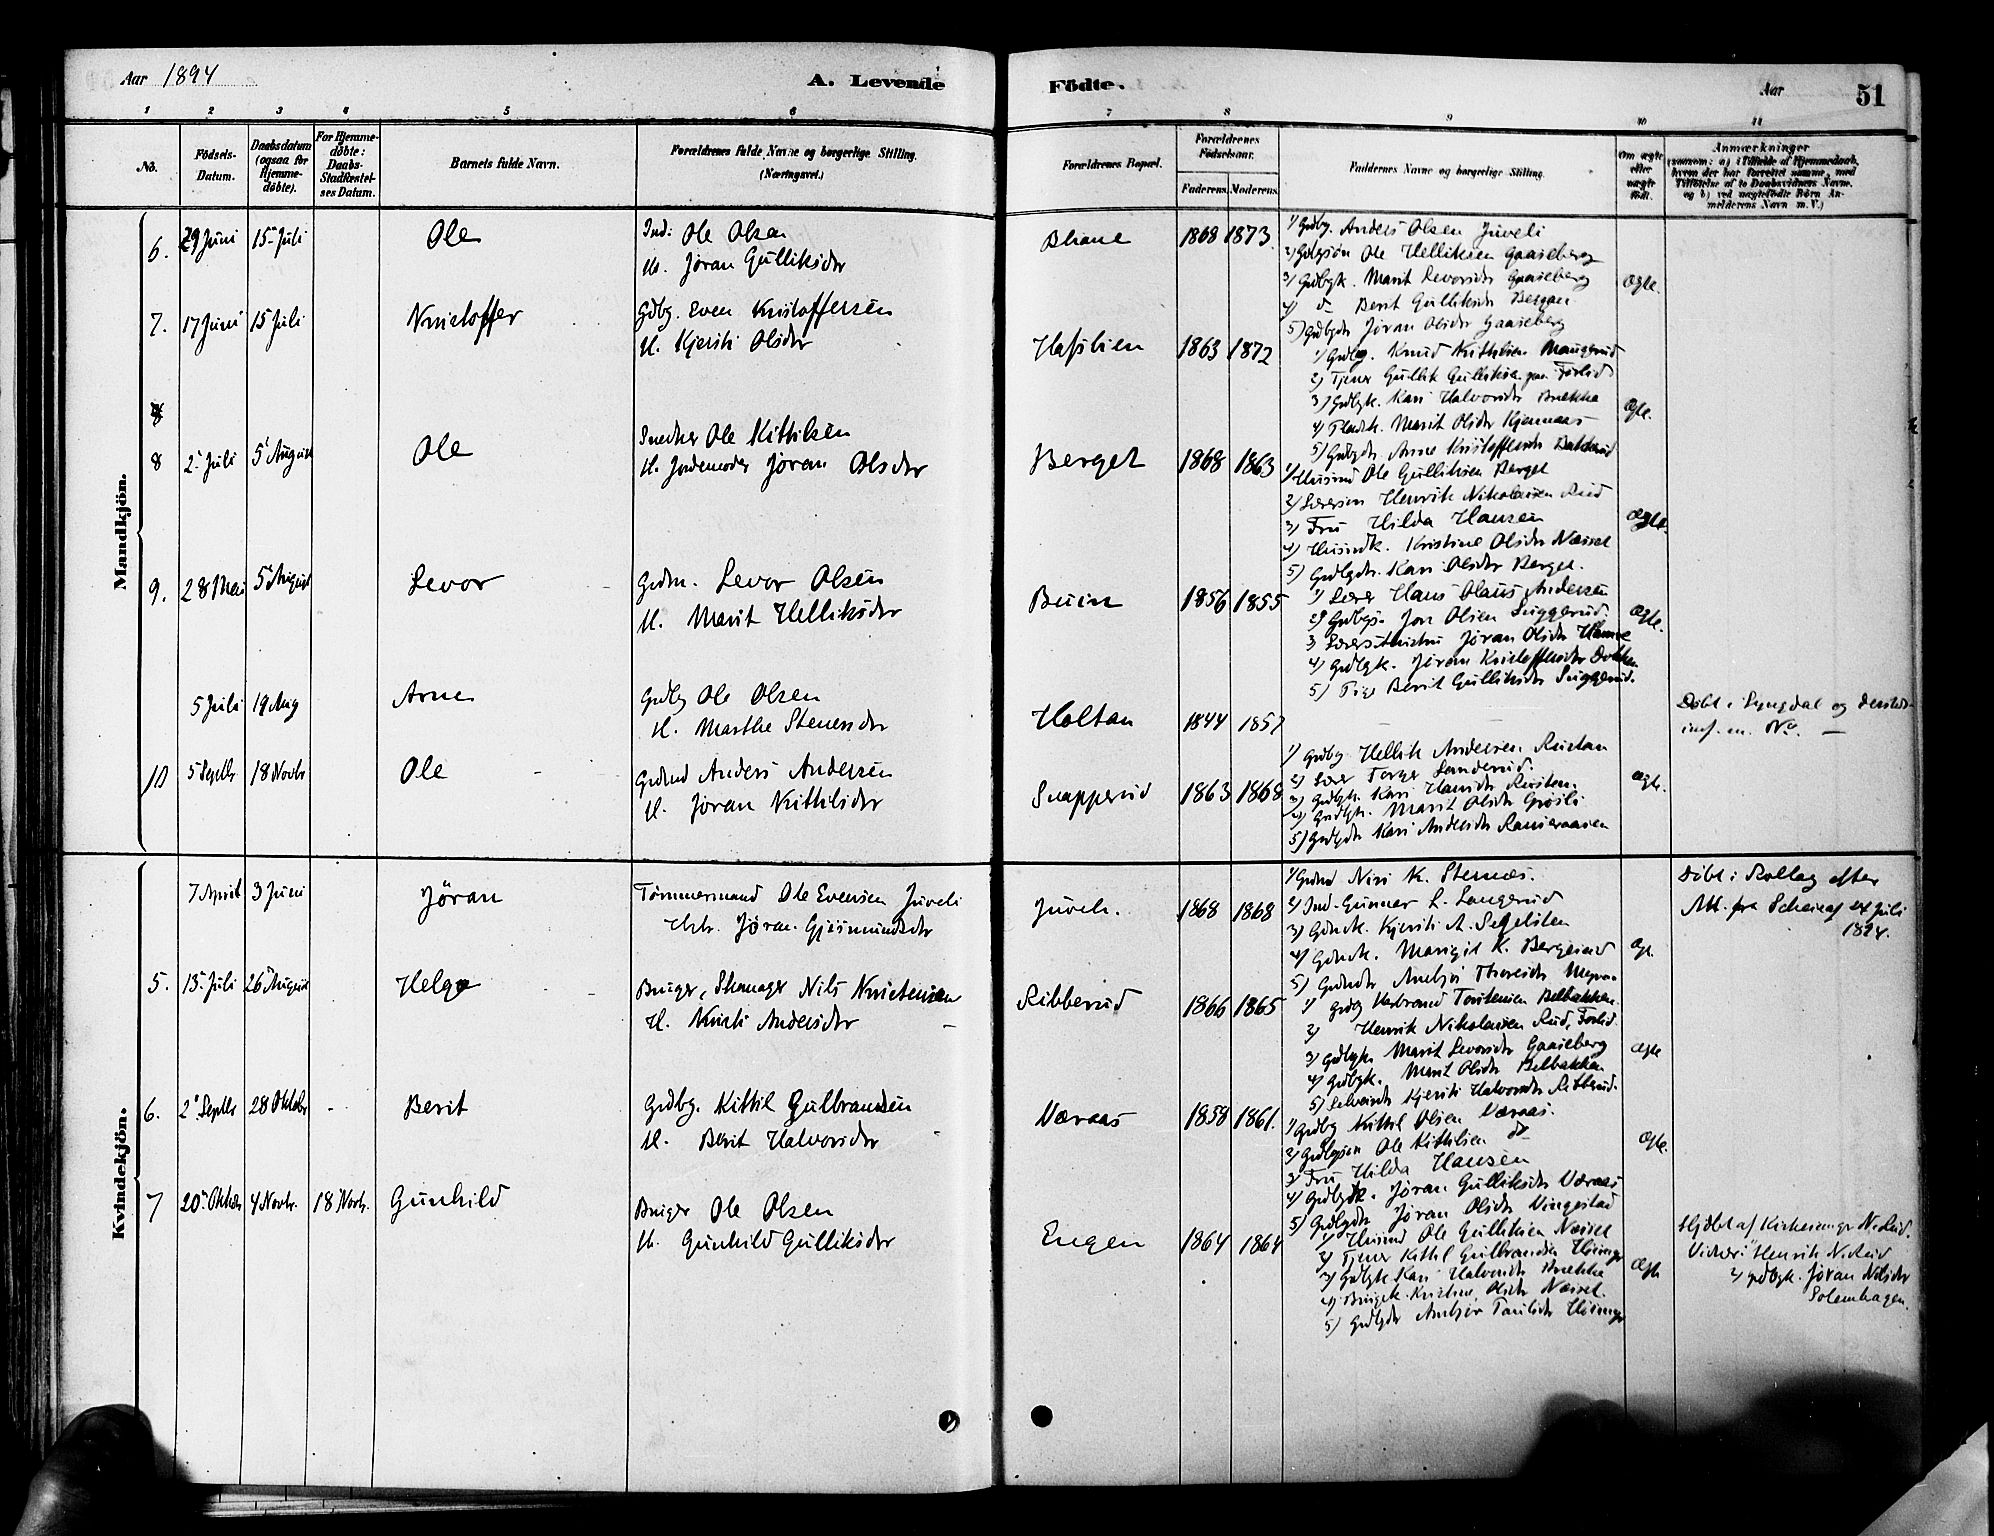 Aar 1894
A. Levende
Födte.
Aar
51
1 2 3 4 5 6 7 8 9 10 11
No.
Födsels-
Datum.
Daabsdatum
(ogsaa for
Hjemme-
døbte).
For Hjemme-
døbte:
Daabs-
Stadfæstel-
ses Datum.
Barnets fulde Navn.
Forældrenes fulde Navne og borgerlige Stilling.
(Næringsvei.)
Forældrenes Bopæl.
Forældrenes
Födselsaar.
Faderens. Moderens.
Faddernes Navne og borgerlige Stilling.
Om ægte
eller
uægte
født.
Anmærkninger
(saasom: a) i Tilfælde af Hjemmedaab,
hvem der har forrettet samme, med
Tilföielse af to Daabsvidners Navne,
og b) ved uægtefødte Börn An-
melderens Navn m. V.)
Mandkjön.
6. 29 Juni 15 Juli Ole
Ind: Ole Olsen
H. Jøran Gulliksdr
1868 1873.
1) Gdbg. Anders Olsen Juveli
2) Gdbgsøn Ole Helliksen Gaaseberg
3) Gdbgk. Marit Levorsdr Gaaseberg
4) d Berit Gulliksdr Bergan
5) Gdbgdr Jøran Olsdr Gaaseberg
Ægte.
7. 17 Juni 15 Juli Kristoffer
Gdbg. Even Kristoffersen
H. Kjersti Olsdr
Hafslien 1863 1872
1) Gdbg. Knud Kittilsen
2) Tjener Gullik Gulliksen
3) Gdbgk. Kari Halvorsdr Brække
4) Marit Olsdr Kjennaas
5) Gdbgdr Anne Kristoffersdr
Ægte.
8
8 2 Juli 5 August Ole
Snedker Ole Kittilsen
H. Jordemoder Jøran Olsdr
Berget 1868 1863
1) Husmd Ole Gulliksen Berget
2) Henrik Nikolaisen Rud
3) Fru Hilda Hansen
4) Husmdk. Kristine Olsdr Næsset
5) Gdbgdr. Kari Olsdr Berget.
Ægte.
9. 28 Mai 5 August Levor
Grdm. Levor Olsen
H. Marit Helliksdr
Buin 1856 1855
1) Lærer Hans Olaus Andersen
2) Gdbgs. Jon Olsen Suggerud.
3 Jøran Olsdr
4) Gdbgk. Jøran Kristoffersdr Dokken
5) Berit Gulliksdr Suggerud.
Ægte.
5 Juli 19 Aug Arne
Gdbg Ole Olsen
H. Marthe Stenersdr
Holtan 1844 1857
Døbt i Lyngdal og
inf. m. No. —
10 5 Septbr 18 Novbr Ole
Grdmd Anders Andersen
H. Jøran Kittilsdr
Snapperud 1863 1868
1) Gdbg. Hellik Andersen Rustan
2) Lærer Torger Sanderud.
3) Gdbgk. Kari Hansdr Rustan.
4) Gdbgk. Marit Olsdr Grøsli
5) Gdbgdr Kari Andersdr
Ægte.
Kvindekjön.
7 April 3 Juni Jöran
Tömmermand Ole Evensen Juveli
Jøran Gjermundsdr
Juveli. 1868 1868
1) Grdmd Niri K. Sternæs.
2) Ind. Gunner L. Langerud
3) Gdmdk. Kjersti A.
4) Gdmdk. Margit K. Bergerud
5) Gdmdr Ambjør Thoresdr
Døbt i Rollag efter
Att. fra 24 Juli
1894.
5. 15 Juli 26 August Helga
Bruger, Skomager Nils Kristensen
H. Kristi Andersdr
Ribberud 1866 1865
1) Gdbg Herbrand Torstensen Belbakken.
2) Henrik Nikolaisen Rud,
3) Gdbgk. Marit Levorsdr Gaaseberg
4) Gdbgk. Marit Olsdr Belbakken
5) Kjersti Halvorsdr Ribberud.
Ægte
6. 2 Septbr 28 Oktobr - Berit
Gdbg. Kittil Gulbrandsen
H. Berit Halvorsdr
Væraas 1858 1861.
1) Gdbg Kittil Olsen Væraas.
2) Gdbgsøn Ole Kittilsen do
3) Fru Hilda Hansen
4) Gdbgk. Jøran Gulliksdr Væraas
5) Gdbgdr Jøran Olsdr Vingestad
Ægte.
7 20 Oktbr 4 Novbr. 18 Novbr. Gunhild
Bruger Ole Olsen
H. Gunhild Gulliksdr
Engen 1864 1864
1) Husmd Ole Gulliksen Næsset
2) Tjener Kittil Gulbrandsen
3) Gdbgk Kari Halvorsdr Brække
4) Brugek. Kristine Olsdr Næsset.
5) Gdbgdr Ambjør
Ægte
Hjdøbt af Kirkesanger N. Rud.
Henrik N. Rud
2) Gdbgk. Jøran Nilsdr
Solemhagen.